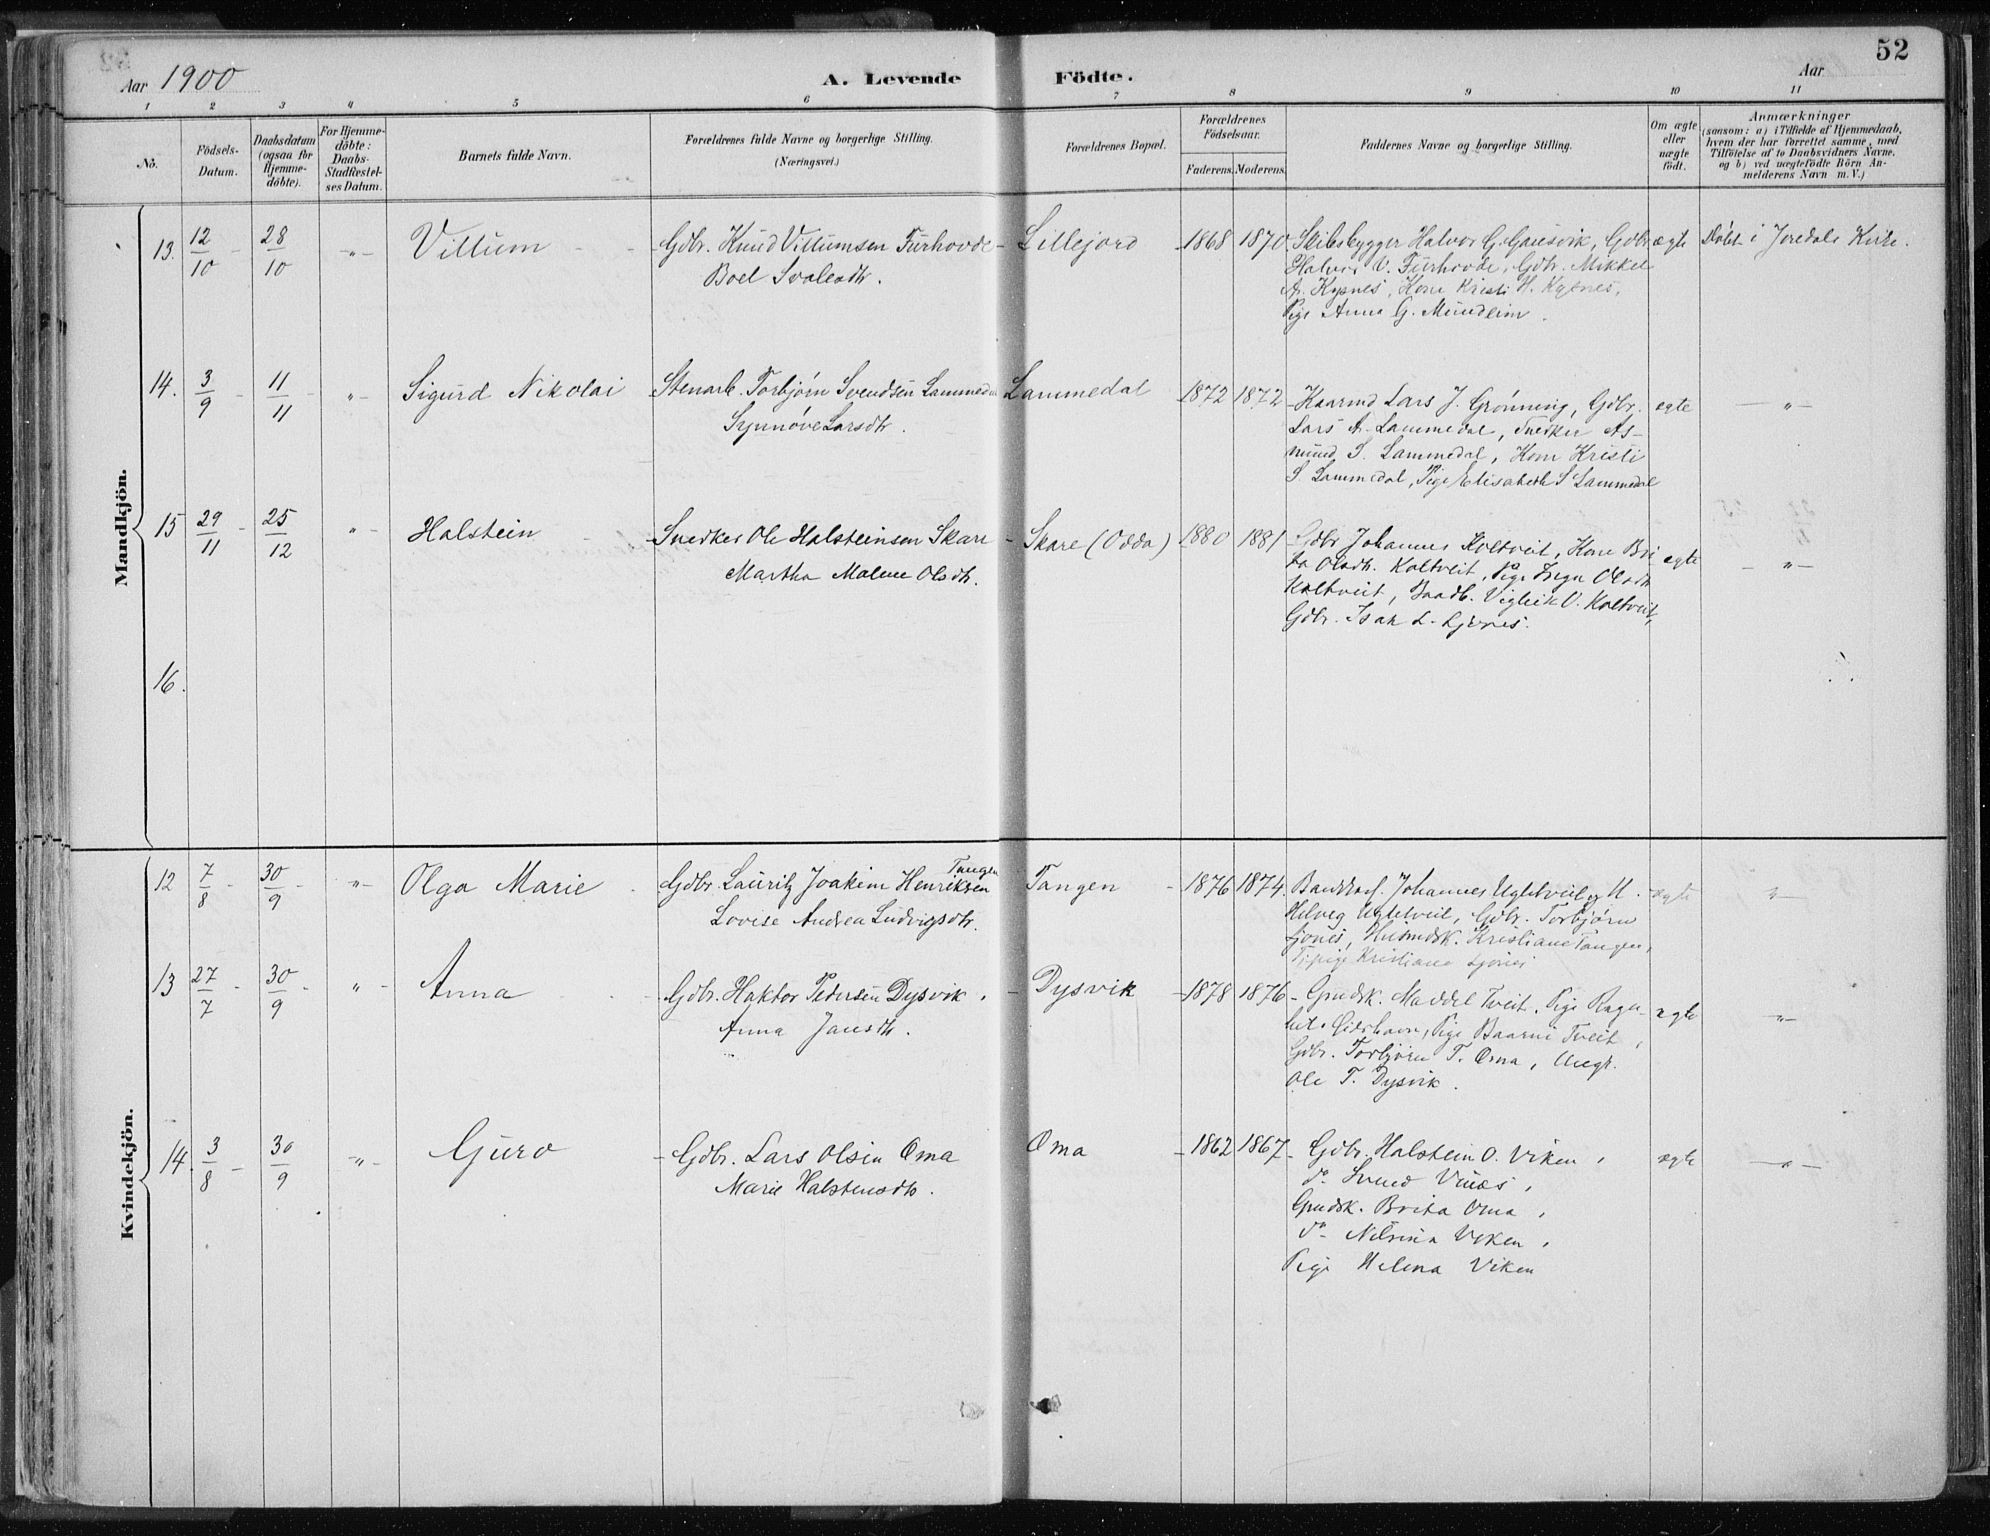 52
Aar 1900
A. Levende Födte.
Aar
1 2 3 4 5 6 7 8 9 10 11
No.
Födsels-Datum.
Daabsdatum (ogsaa for Hjemme-döbte).
For Hjemme-döbte: Daabs-Stadfæstel-ses Datum.
Barnets fulde Navn.
Forældrenes fulde Navne og borgerlige Stilling.
(Næringsvei.)
Forældrenes Bopæl.
Forældrenes Födselsaar.
Faderens. Moderens.
Faddernes Navne og borgerlige Stilling.
Om ægte eller uægte födt.
Anmærkninger
(saasom: a) i Tilfælde af Hjemmedaab,
hvem der har forrettet samme, med
Tilföielse af to Daabsvidners Navne,
og b) ved uægtefödte Börn An-
melderens Navn m. V.)
Mandkjön.
13. 12/10 - 28/10 -"- Villum - - Gdbr. Knud Villumsen Furhovde - Lillejord - 1868 1870 Skibsbygger Halvor G. Gausvik, Gdbr. ægte Døbt i Joredals Kirke.
Boel Svalesdtr. Halvor V. Furhovde, Gdbr. Mikkel
A. Kysnes, Kone Kristi H. Kysnes,
Pige Anna G. Mundheim.
14. 3/9 - 11/11 - -"- Sigurd Nikolai - Stenarb. Torbjørn Svendsen Lammedal Lammedal - 1872 1872 - Kaarmd Lars J. Grønning, Gdbr. egte -"-
Synnøve Larsdtr. Lars A. Lammedal, Snedker As-
mund S. Lammedal, Kone Kristi
S. Lammedal, Pige Elisabeth S Lammedal
15 29/11 - 25/12 "- Halstein - Snedker Ole Halsteinsen Skare - Skare (Odda) - 1880 1881 - Gdbr Johannes Koltveit, Kone Bri egte -"-
Martha Malene Olsdtr. ta Olsdtr. Koltveit, Pige Inga Olsdtr
Koltveit, Baadb. Viglik V. Koltveit,
Gdbr. Isak L. Ljones.
16.
Kvindekjön.
12 7/8 - 30/9 - -"- Olga Marie - Gdbr. Lauritz Joakim Henriksen Tangen Tangen - 1876 1874. Johannes - egte -"-
Lovise Andrea Ludvigsdtr. Gdbr. Torbjørn
Ljones, Husmdsk. Kristiane Tangen,
Tjpige Kristiane Ljones
13 27/7 - 30/9 - "- Anna - - Gdbr. Haktor Pedersen Dysvik, - Dysvik - 1878 1876 - Gmdsk. Maddel Tveit, Pige Ragn- ægte -"-
Anna Jansdtr. Pige Baarni Tveit,
Gdbr. Torbjørn T. Oma, Ungk.
Ole T. Dysvik.
14. 3/8 - 30/9 -"- Guro - Gdbr. Lars Olsen Oma Oma - 1862 1867 - Gdbr. Halstein O. Viken, egte -"-
Marie Halstensdtr. do Svend Vines,
Gmdsk. Brita Oma,
do Nilsina Viken,
Pige Helena Viken